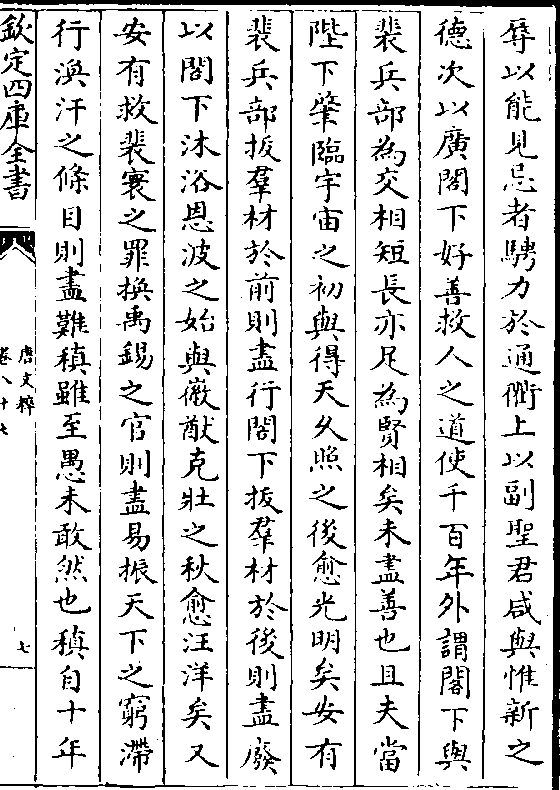 辱以能見忌者騁力於通衢上以副聖君咸與惟新之
德次以廣閣下好善救人之道使千百年外謂閣下與
裴兵部為交相短長亦足為賢相矣未盡善也且夫當
陛下肇臨宇宙之初與得天久照之後愈光明矣安有
裴兵部拔羣材於前則盡行閣下拔羣材於後則盡廢
以閣下沐浴恩波之始與徽猷克壯之秋愈汪洋矣又
安有救裴寰之罪換禹錫之官則盡易振天下之窮滯
行渙汗之條目則盡難稹雖至愚未敢然也稹自十年
欽定四庫全書
唐文粹
卷八十七
七